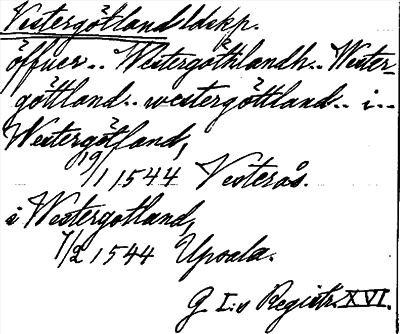 Vestergötland ldskp.
öffuer.. Westergöthlandh.. Wester-
göttland.. westergöttland.. i..
Westergötland,
19/1 1544 Vesterås.
i Westergotland,
7/2 1544 Upsala.
G I:s Registr. XVI.